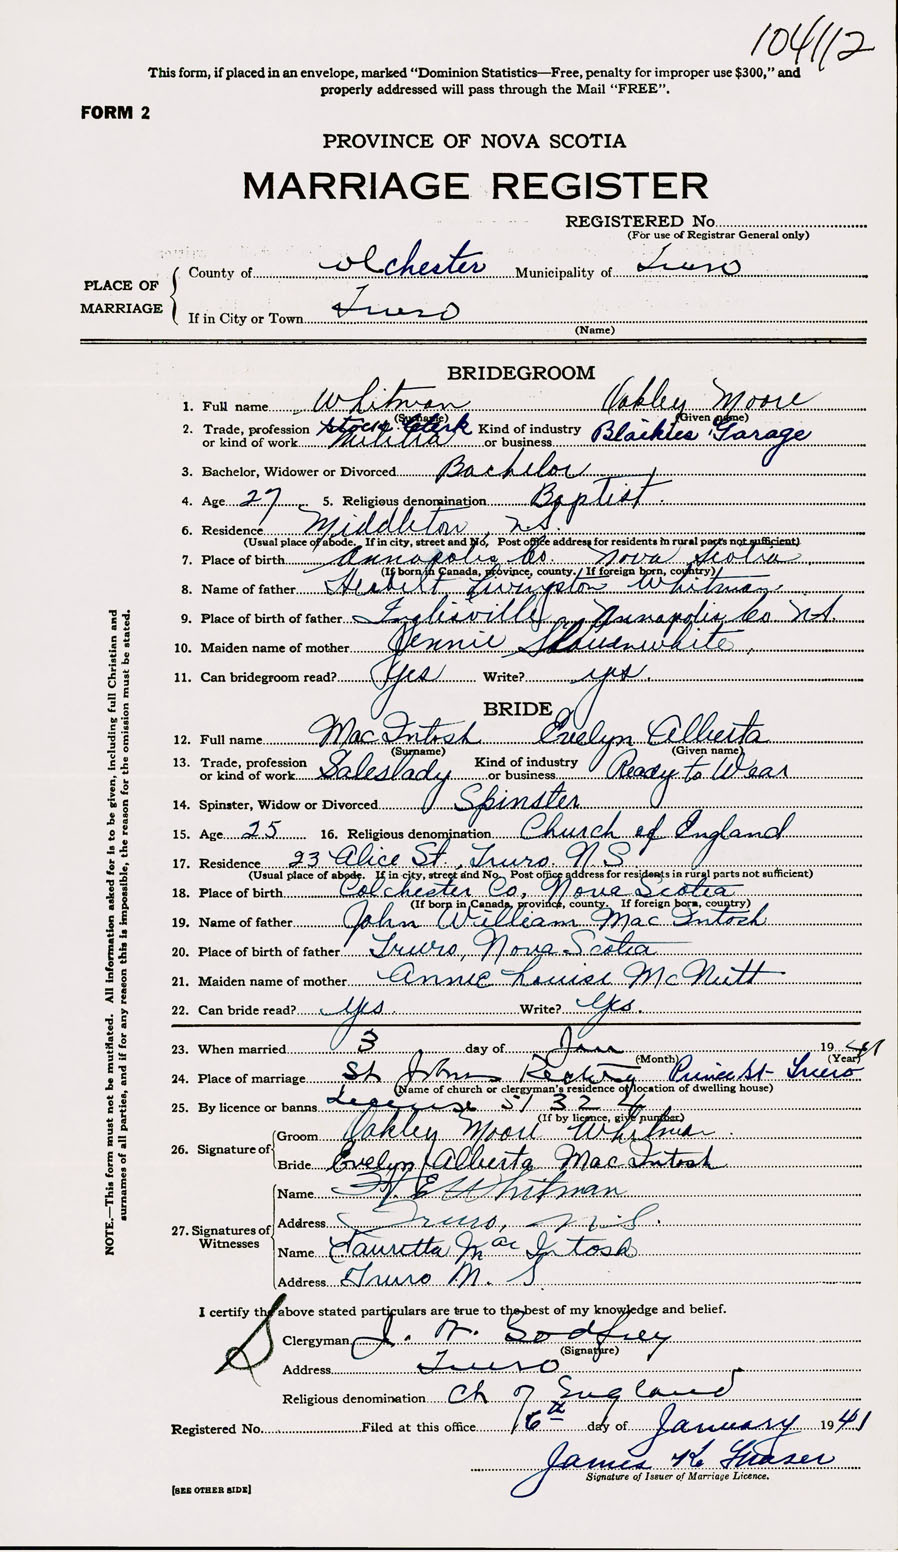 104112
This form, if placed in an envelope, marked "Dominion Statistics—Free, penalty for improper use $300," and
properly addressed will pass through the Mail "FREE".
FORM 2
PROVINCE OF NOVA SCOTIA
MARRIAGE REGISTER
REGISTERED No.
(For use of Registrar General only)
PLACE OF MARRIAGE
County of Colchester Municipality of Truro
If in City or Town Truro
(Name)
BRIDEGROOM
1. Full name Whitman Oakley Moore
(Surname) (Given name)
2. Trade, profession Stock Clerk Kind of industry Blaikies Garage
or kind of work Militia or business
3. Bachelor, Widower or Divorced Bachelor
4. Age 27 5. Religious denomination Baptist.
6. Residence Middleton, N.S.
(Usual place of abode. If in city, street and No. Post office address for residents in rural parts not sufficient)
7. Place of birth Annapolis Co. Nova Scotia
(If born in Canada, province, county. If foreign born, country)
8. Name of father Livingston Whitman
9. Place of birth of father Inglisville Annapolis Co N.S.
10. Maiden name of mother Jennie Slauenwhite
11. Can bridegroom read? Yes Write? yes.
BRIDE
12. Full name MacIntosh Evelyn Alberta
(Surname) (Given name)
13. Trade, profession Saleslady Kind of industry Ready to Wear
or kind of work or business
14. Spinster, Widow or Divorced Spinster
15. Age 25 16. Religious denomination Church of England
17. Residence 23 Alice St., Truro. N.S.
(Usual place of abode. If in city, street and No. Post office address for residents in rural parts not sufficient)
18. Place of birth Colchester Co, Nova Scotia
(If born in Canada, province, county. If foreign born, country)
19. Name of father John William MacIntosh
20. Place of birth of father Truro, Nova Scotia
21. Maiden name of mother Annie Louise McNutt
22. Can bride read? yes. Write? Yes.
23. When married 3 day of Jan 1941
(Month) (Year)
24. Place of marriage St Johns Rectory Prince St Truro
(Name of church or clergyman's residence or location of dwelling house)
25. By licence or banns License 51324
(If by licence, give number)
26. Signature of
Groom Oakley Moore Whitman.
Bride Evelyn Alberta MacIntosh
27. Signatures of Witnesses
Name E Whitman
Address Truro, N.S.
Name Lauretta MacIntosh
Address Truro N. S
I certify the above stated particulars are true to the best of my knowledge and belief.
Clergyman J. W. Godfrey
(Signature)
Address Truro
Religious denomination Ch of England
Registered No. Filed at this office 6th day of January 1941
James K Fraser
Signature of Issuer of Marriage Licence.
[SEE OTHER SIDE]
NOTE.—This form must not be mutilated. All information asked for is to be given, including full Christian and
surnames of all parties, and if for any reason this is impossible, the reason for the omission must be stated.